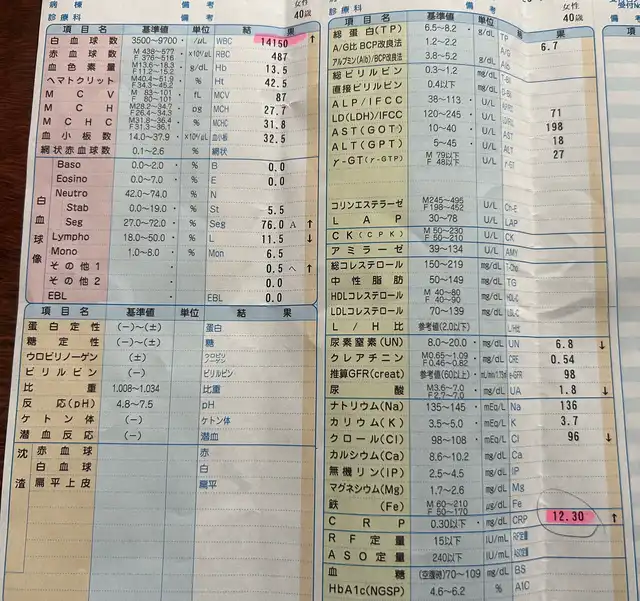 病棟 備考 女性
診療科 40歳
項目名 基準値 単位 結果
白血球数 3500~9700 /μL WBC 14150 ↑
赤血球数 M 438~577 F 376~516 ×10⁴/μL RBC 487
血色素量 M13.6~18.3 F11.2~15.2 g/dL Hb 13.5
ヘマトクリット M40.4~51.9 F34.3~45.2 % Ht 42.5
MCV M 83~101 F 80~101 fL MCV 87
MCH M28.2~34.7 F26.4~34.3 pg MCH 27.7
MCHC M31.8~36.4 F31.3~36.1 % MCHC 31.8
血小板数 14.0~37.9 ×10⁴/μL 血小板 32.5
網状赤血球数 0.1~2.6 % 網状
白血球像
Baso 0.0~2.0 % B 0.0
Eosino 0.0~7.0 % E 0.0
Neutro 42.0~74.0 % N
Stab 0.0~19.0 % St 5.5
Seg 27.0~72.0 % Seg 76.0 A ↑
Lympho 18.0~50.0 % L 11.5 ↓
Mono 1.0~8.0 % Mon 6.5
その他1 0.5 ヘ ↑
その他2 0.0
EBL EBL 0.0
項目名 基準値 単位 結果
蛋白定性 (-)~(±) 蛋白
糖定性 (-)~(±) 糖
ウロビリノーゲン (±) ウロビリノーゲン
ビリルビン (-) ビリルビン
比重 1.008~1.034 比重
反応(pH) 4.8~7.5 pH
ケトン体 (-) ケトン体
潜血反応 (-) 潜血
沈渣
赤血球 赤
白血球 白
扁平上皮 扁平
備考 女性
診療科 40歳
項目名 基準値 単位 結果
総蛋白(TP) 6.5~8.2 g/dL TP 6.7
A/G比 BCP改良法 1.2~2.2 A/G
アルブミン(Alb)/BCP改良法 3.8~5.2 g/dL
総ビリルビン 0.3~1.2 mg/dL
直接ビリルビン 0.4以下 mg/dL
ALP/IFCC 38~113 U/L 71
LD(LDH)/IFCC 120~245 U/L 198
AST(GOT) 10~40 U/L AST 18
ALT(GPT) 5~45 U/L ALT 27
γ-GT(γ-GTP) M 79以下 F 48以下 U/L γ-GT
コリンエステラーゼ M245~495 F198~452 U/L Ch-E
LAP 30~78 U/L LAP
CK(CPK) M 50~230 F 50~210 U/L CK
アミラーゼ 39~134 U/L AMY
総コレステロール 150~219 mg/dL T-Cho
中性脂肪 50~149 mg/dL TG
HDLコレステロール M 40~80 F 40~90 mg/dL HDL-C
LDLコレステロール 70~139 mg/dL LDL-C
L/H比 参考値(2.0以下) L/H比
尿素窒素(UN) 8.0~20.0 mg/dL UN 6.8 ↓
クレアチニン M0.65~1.09 F0.46~0.82 mg/dL CRE 0.54
推算GFR(creat) 参考値(60以上) e-GFR 98
尿酸 M3.6~7.0 F2.7~7.0 mg/dL UA 1.8 ↓
ナトリウム(Na) 135~145 mEq/L Na 136
カリウム(K) 3.5~5.0 mEq/L K 3.7
クロール(Cl) 98~108 mEq/L Cl 96 ↓
カルシウム(Ca) 8.6~10.2 mg/dL Ca
無機リン(IP) 2.5~4.5 mg/dL IP
マグネシウム(Mg) 1.7~2.6 mg/dL Mg
鉄(Fe) M 60~210 F 50~170 μg/dL Fe
CRP 0.30以下 mg/dL CRP 12.30 ↑
RF定量 15以下 IU/mL RF定量
ASO定量 240以下 IU/mL ASO定量
血糖 (空腹時)70~109 mg/dL BS
HbA1c(NGSP) 4.6~6.2 % A1C